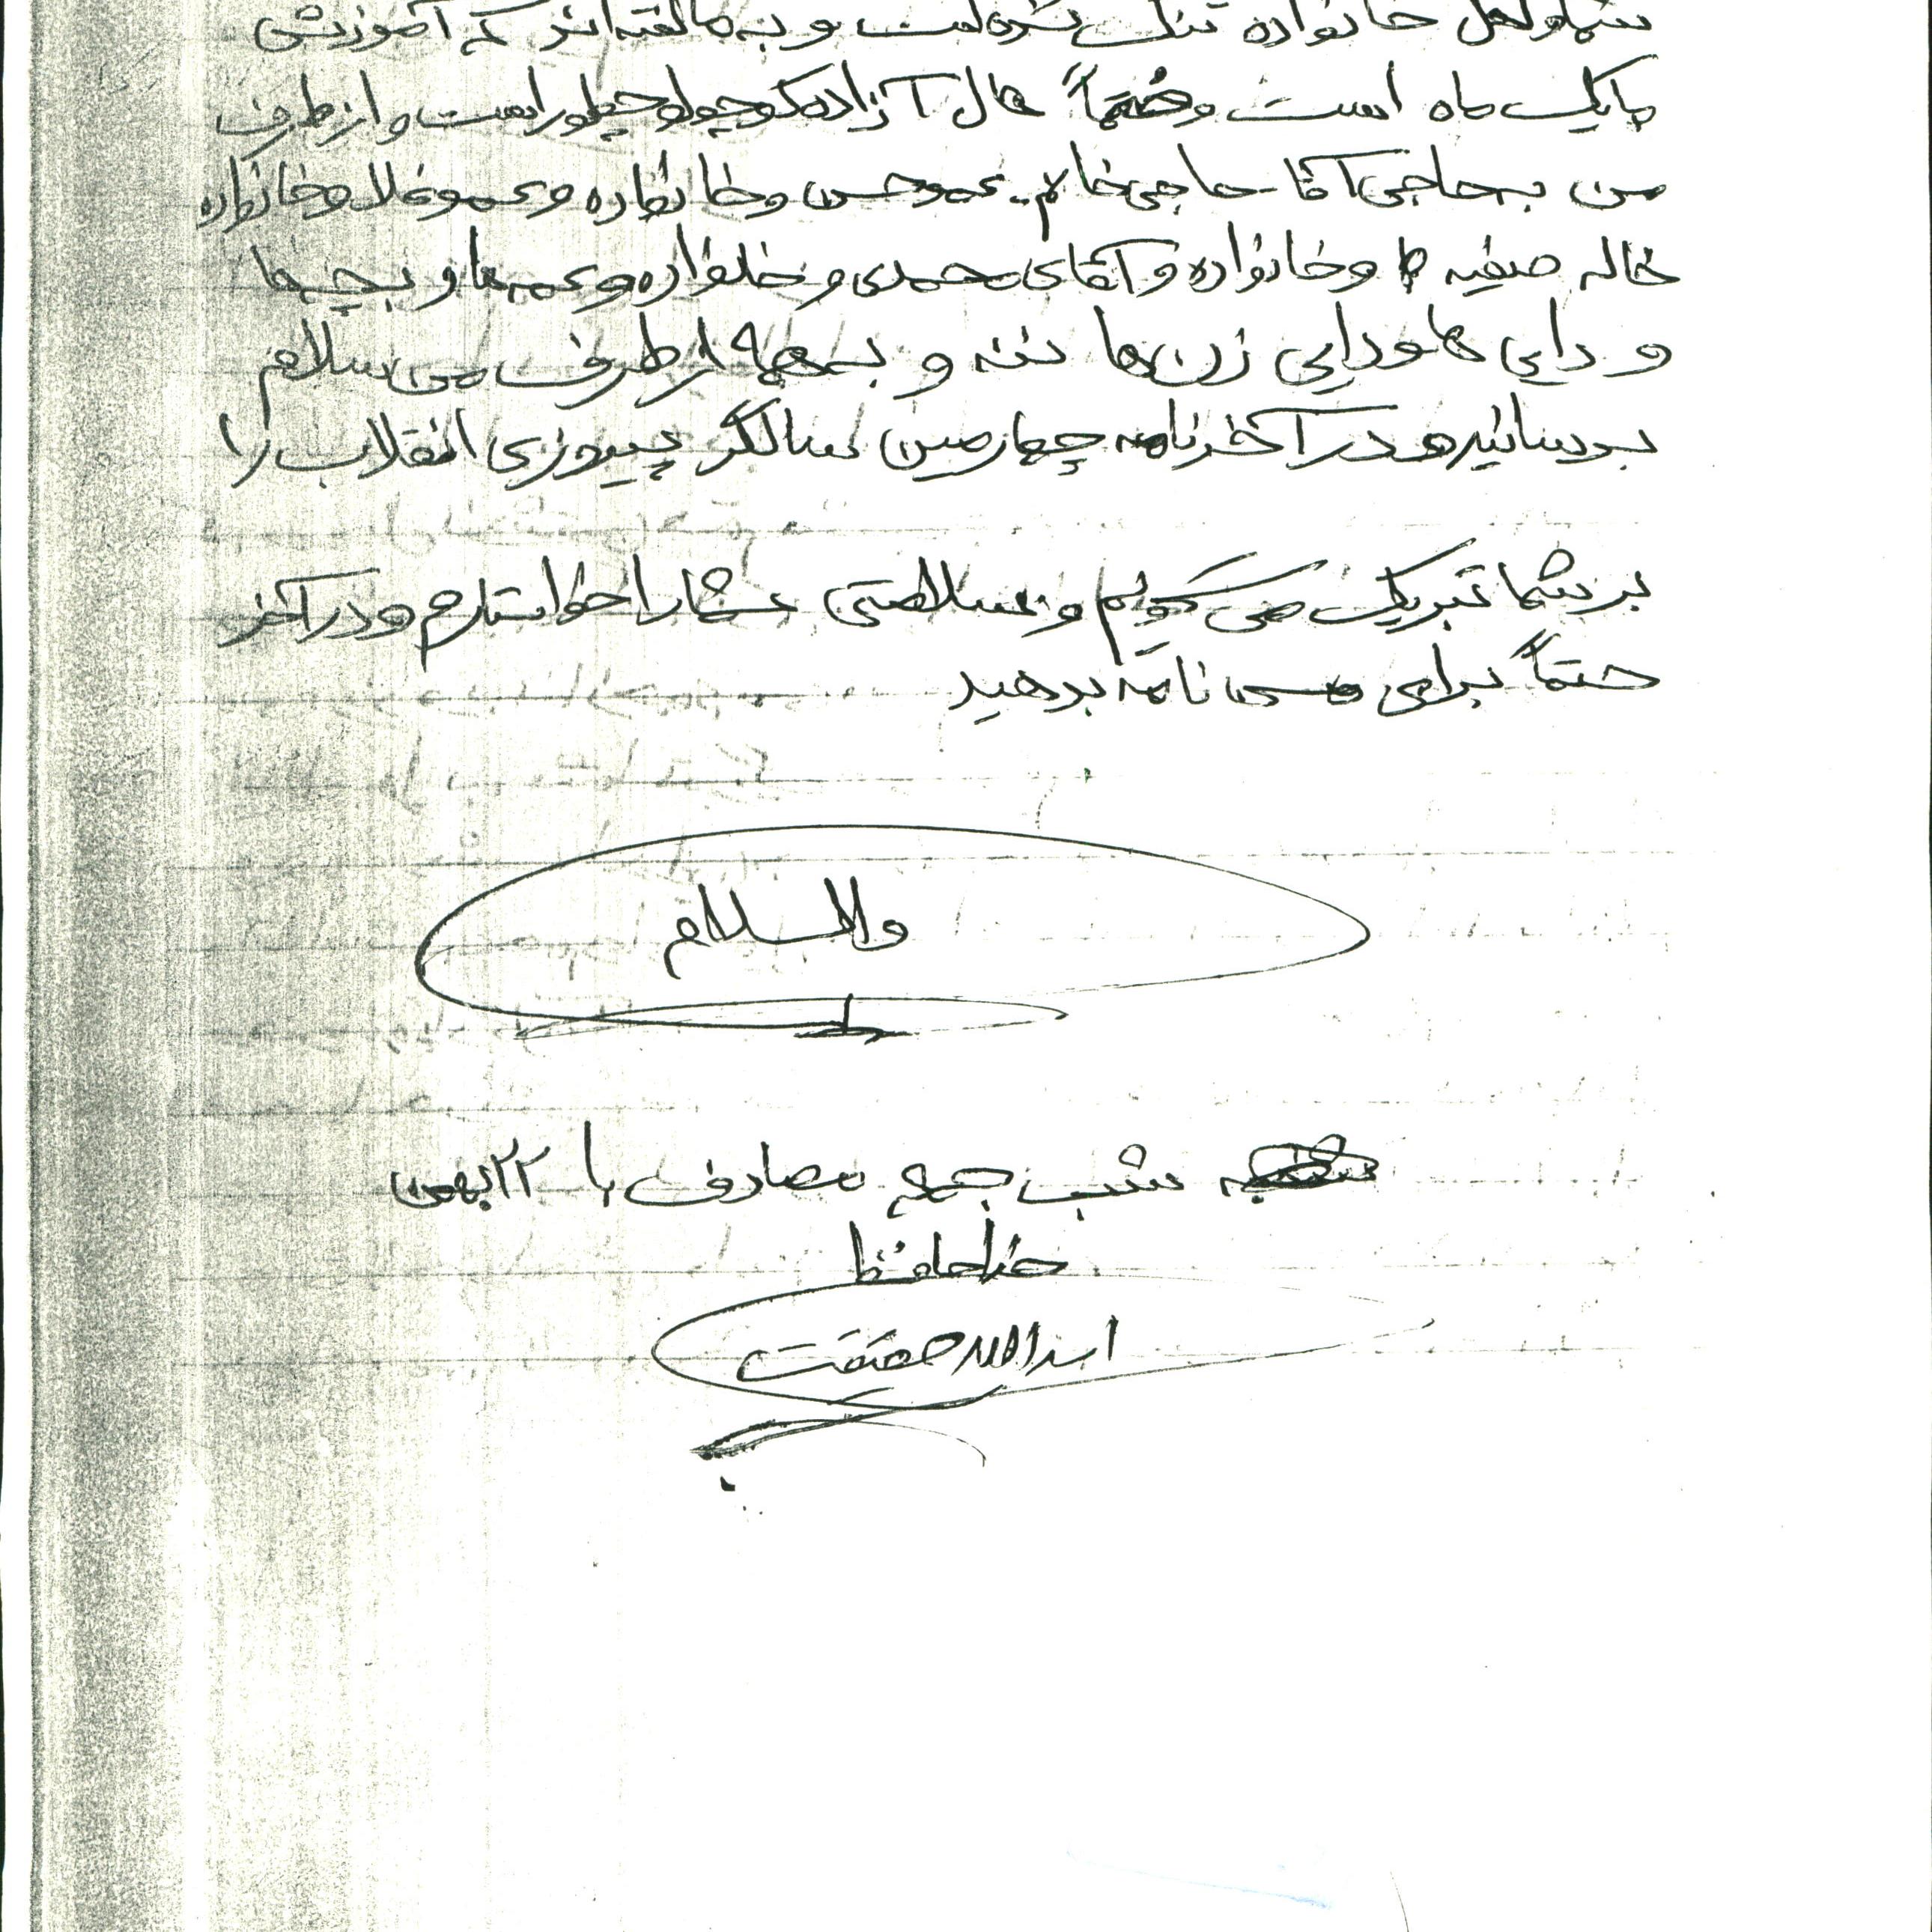 شما و اهل خانواده تنگ شده است و به ما گفته‌اند که آموزشی
ما یک ماه است و حتماً حال آزاده کوچولو چطور است و از طرف
من به حاجی آقا حاجی خانم عمو حسن و خانواده و عمو غلا و خانواده
خاله صفیه و خانواده و آقای محمدی و خانواده و عمه ها و بچه ها
و دایی ها و دایی زن ها ننه و به همه از طرف من سلام
برسانید و در آخر نامه چهارمین سالگر پیروزی انقلاب را
بر شما تبریک می گویم و سلامتی شما را خواستارم و در آخر
حتماً برای من نامه بدهید
والسلام
شب جمعه مصادف با ۲۲ بهمن
خداحافظ
اسدالله حقیقت